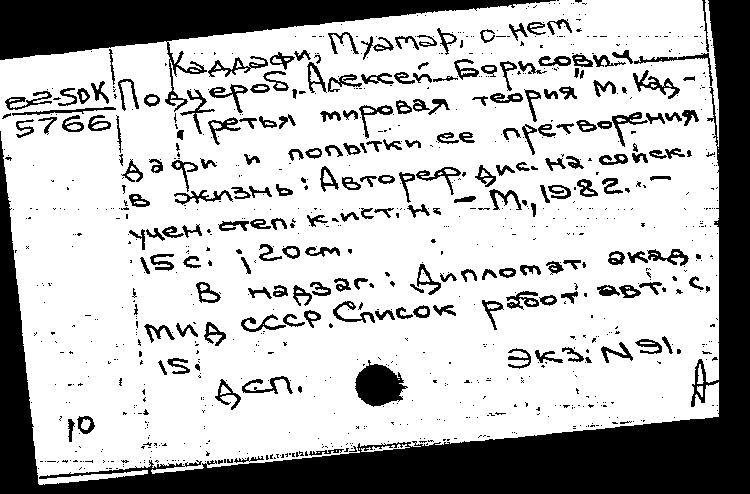 Каддафи, Муамар, о нем.
82-5DK Подцероб, Алексей Борисович.
5766 "Третья мировая теория" М. Кад-
дафи и попытки ее претворения
в жизнь: Автореф. дис. на соиск.
учен. степ. к.ист.н. - М., 1982. -
15 с.; 20 см.
В надзаг.: Дипломат. акад.
МИД СССР. Список работ. авт.: с.
15.
Экз. N 91.
ДСП.
10